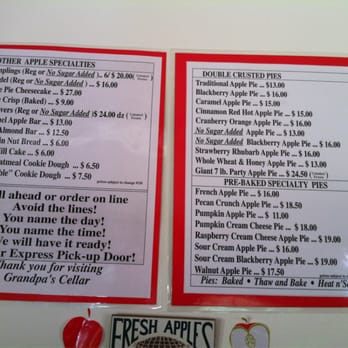 OTHER APPLE SPECIALTIES
(Reg or No Sugar Added )... 6/ $ 20.00
(Reg or No Sugar Added ) ... $ 16.00
Pie Cheesecake ... $ 27.00
Crisp (Baked) ... $ 9.00
(Reg or No Sugar Added )$ 24.00 dz
Apple Bar ... $ 13.00
Almond Bar ... $ 12.50
Nut Bread ... $ 6.00
Cake ... $ 6.00
Oatmeal Cookie Dough ... $ 6.50
Cookie Dough ... $ 7.50
prices subject to change
Call ahead or order on line
Avoid the lines!
You name the day!
You name the time!
We will have it ready!
Our Express Pick-up Door!
Thank you for visiting
Grandpa's Cellar
DOUBLE CRUSTED PIES
Traditional Apple Pie ... $13.00
Blackberry Apple Pie ... $ 16.00
Caramel Apple Pie ... $ 15.00
Cinnamon Red Hot Apple Pie ... $ 15.00
Cranberry Orange Apple Pie ... $ 16.00
No Sugar Added Apple Pie ... $ 13.00
No Sugar Added Blackberry Apple Pie ... $ 16.00
Strawberry Rhubarb Apple Pie ... $ 16.00
Whole Wheat & Honey Apple Pie ... $ 13.00
Giant 7 lb. Party Apple Pie ... $ 24.50
PRE-BAKED SPECIALTY PIES
French Apple Pie ... $ 16.00
Pecan Crunch Apple Pie ... $ 18.50
Pumpkin Apple Pie ... $ 11.00
Pumpkin Cream Cheese Pie ... $ 18.00
Raspberry Cream Cheese Apple Pie ... $ 19.00
Sour Cream Apple Pie ... $ 16.00
Sour Cream Blackberry Apple Pie ... $ 19.00
Walnut Apple Pie ... $ 17.50
Pies: Baked • Thaw and Bake • Heat n'
FRESH APPLES